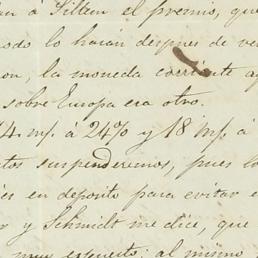 á Silken el premio, que
lo harán despues de ve
la moneda corriente
sobre Europa era otro.
4 m/. á 24% y 18 m/. á
suspenderemos, pues lo
en deposito para evitar e
y Schmidt me dice, que
muy expuesto; al mismo